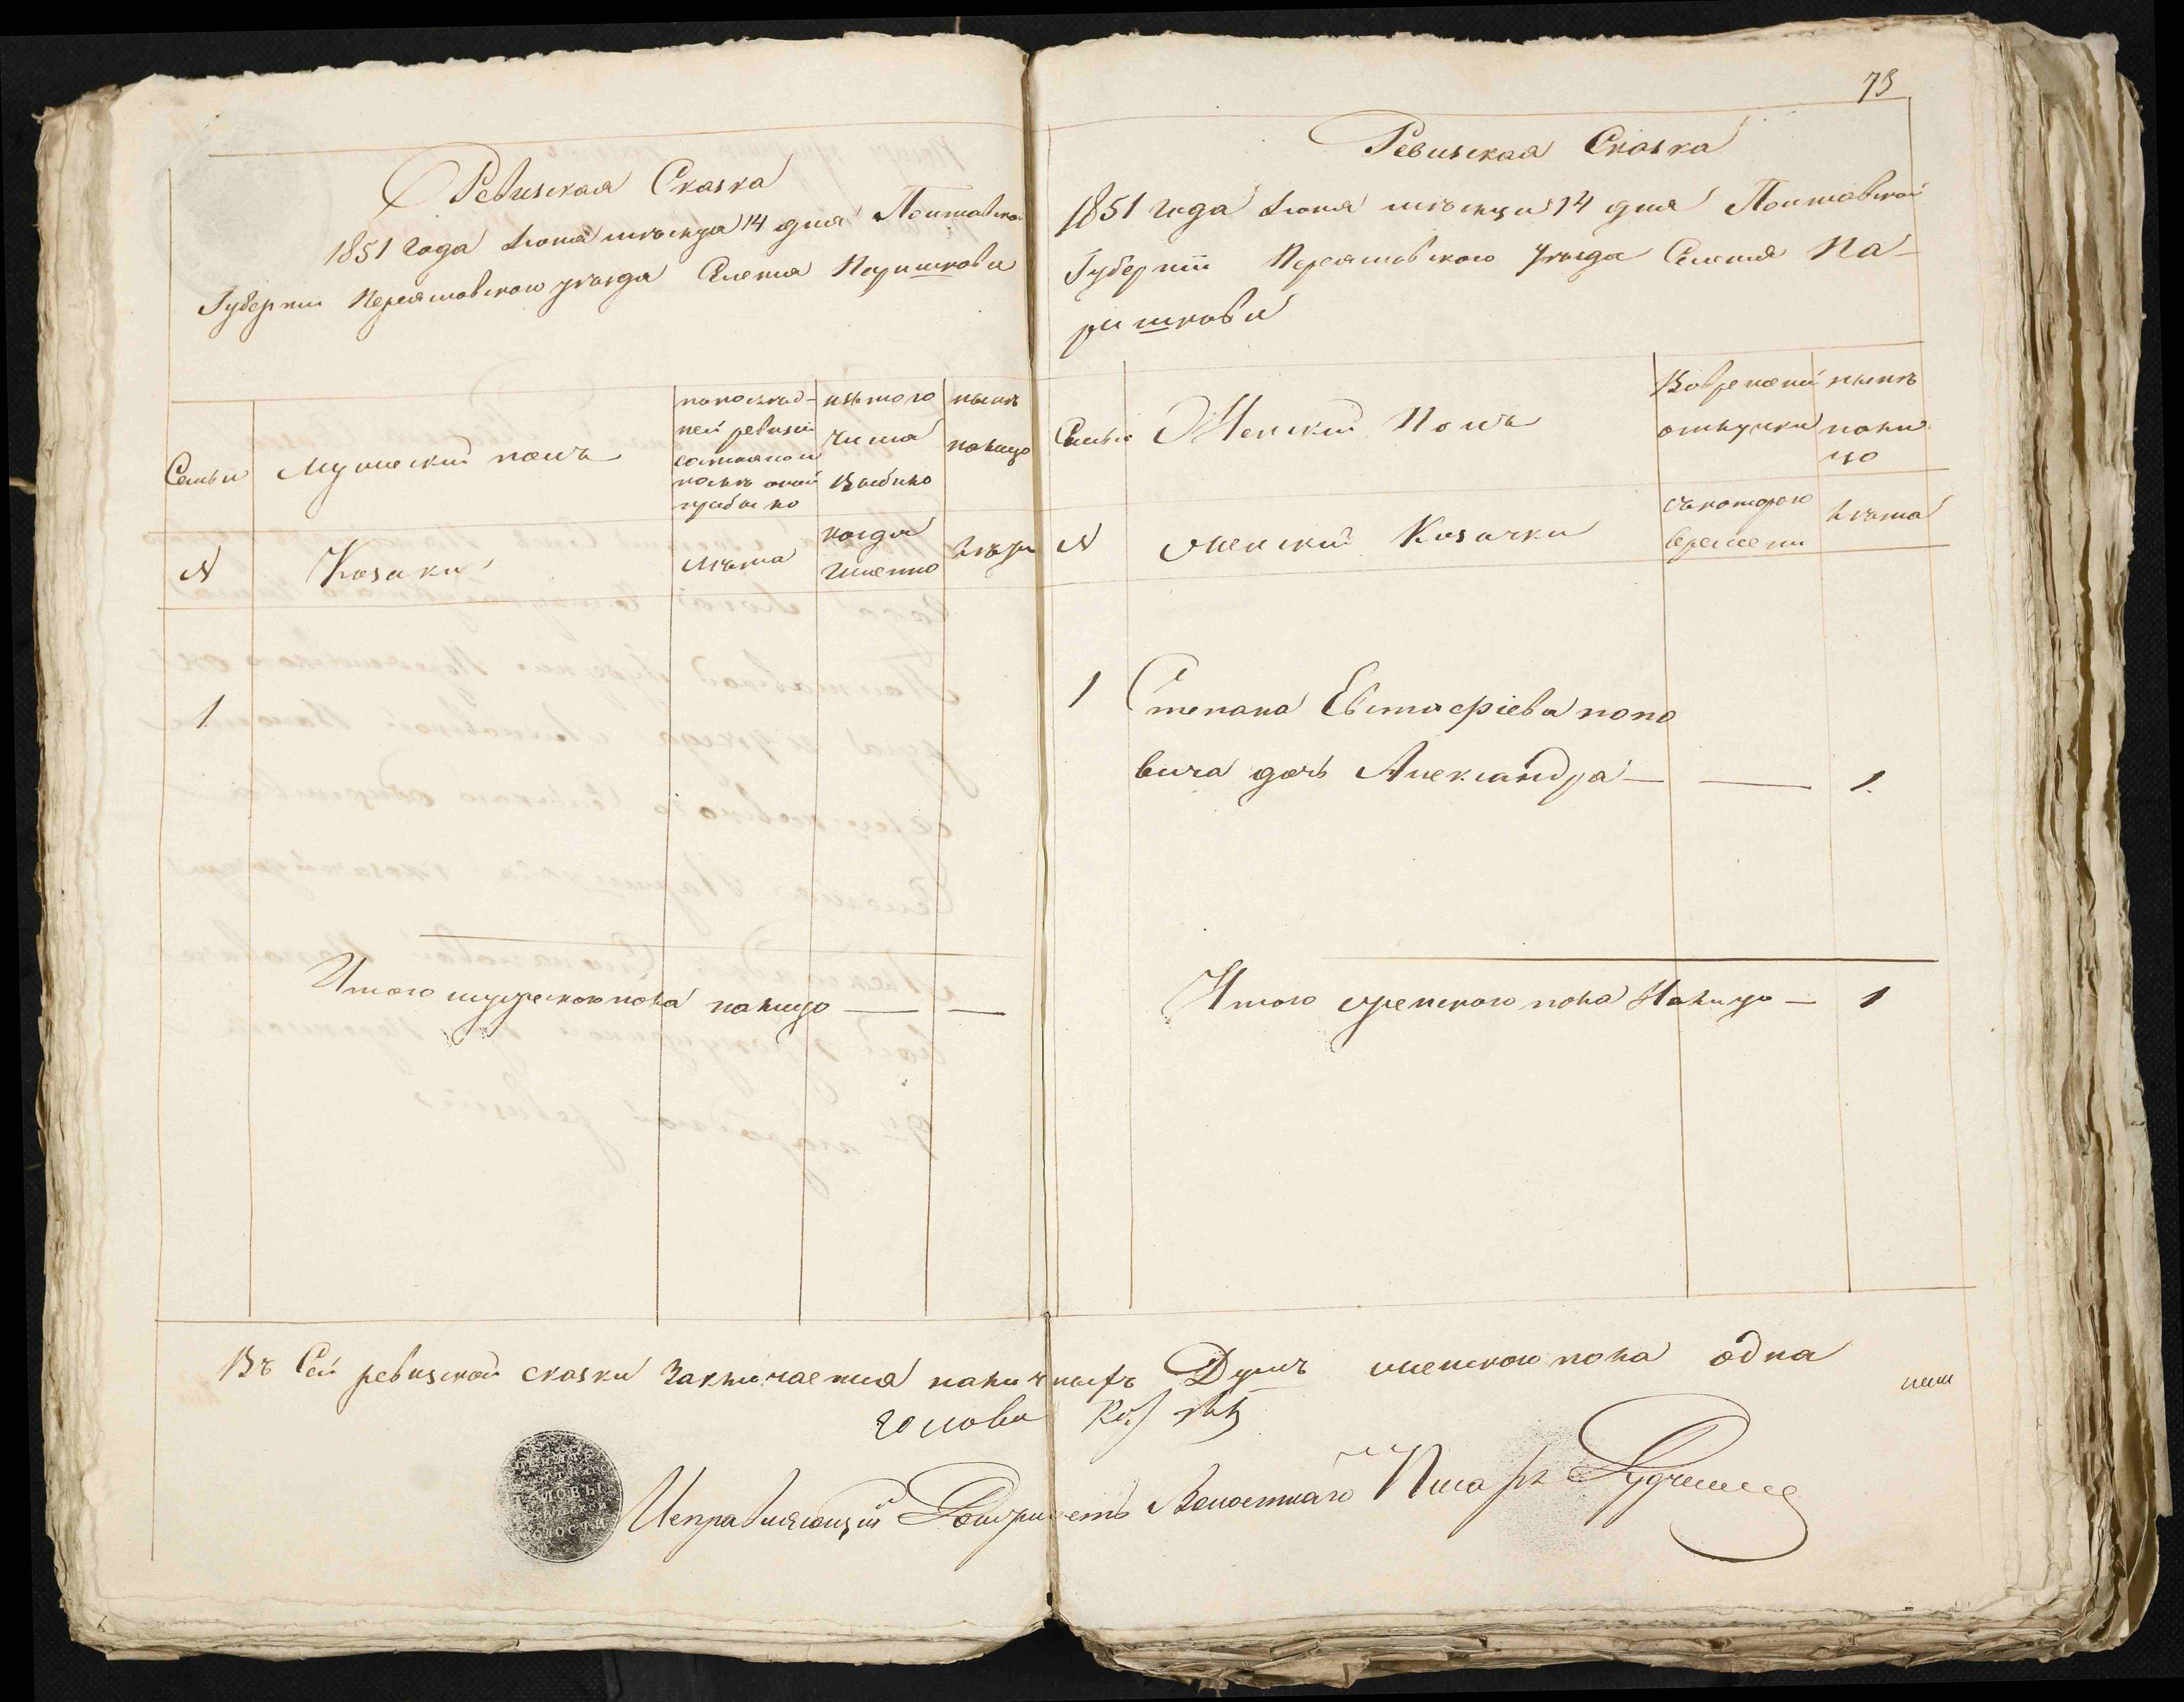 Ревизская Сказка
1851 года Июня мѣсяца 14 дня Полтавской
Губернии Переяславского уѣзда Селенія Паришкова
Семьи
Мужеский полъ
по послѣд-
ней ревизіи
состояло и
послѣ оной
прибыло
изъ того
числа
выбыло
нынѣ
налицо
N
Козаки
Лѣта
когда
Именно
Лѣта
1
Итого мужеского пола налицо — —
73
Ревизская Сказка
1851 года Июня мѣсяца 14 дня Полтавской
Губернии Переяславского Уѣзда Селенія Па-
ришкова
Семьи
Женский Полъ
Во временной
отлучки
нынѣ
нали
цо
N
женский Козачки
съ которого
времени
Лѣта
1 Степана Евстафіева Попо
вича дочь Александра — — 1.
Итого женского пола Налицо — 1
Въ Сей ревизской сказки Заключается наличныхъ Душъ женского пола одна
Голова
Исправляющий Должность Волостнаго Писарь